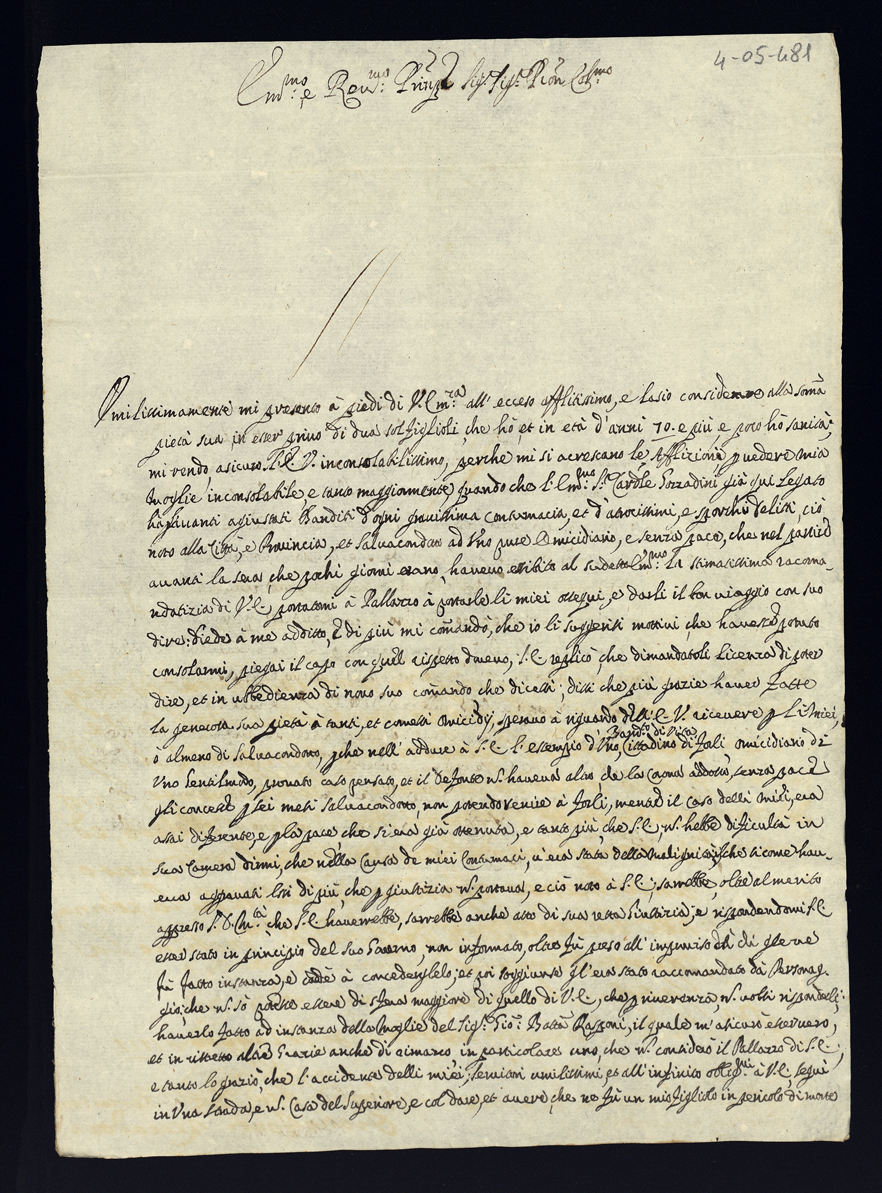 4-05-481
Em:mo e Reu:mo Prinp Sig: Sig: Pron Col:mo
Vmilissimamente mi presento à piedi di V: Em:za all' ecceso afflitissimo, e lasio considerare alla soma
pietà sua in esser priuo di dua sol figlioli, che hò, et in età d'anni 70. e più e poco hò sanità,
mi rendo, asicuro S. E. V. inconsolabilissimo, perche mi si acrescano le Afflizioni puedere mia
Moglie inconsolabile, e tanto maggiormente quando che l'Em:mo S: Car:dle Gozzadini già qui Legato
hà auanti agiustati Banditi d'ogni grauissima contumacia, et d'atrocissimi, e sporchi delitti, ciò
noto alla Città, e Prouincia, et Saluacondoto ad Vno pure Omicidiario, e senza pace, che nel partire
auanti la sera, che pochi giorni erano, haueuo essibito al sudetto Em:mo la stimatissima racoma-
ndatizia di V: E: portatomi à Pallazzo à portarle li miei ossequi, e darli il bon uiaggio con suo
dire: Siede à me additto, e di più mi comandò, che io li suggerissi mottiui, che hauesse potuto
consolarmi, piegai il capo con quell rispetto deuuo, S. E. replicò, che dimandatoli licenza di poter
dire, et in ubbedienza di nouo suo comando che dicessi; dissi che più grazie hauer fatte
la generosa sua pietà à tanti, et comessi omicidij, sperauo à riguardo dell'E. V. riceuere p li miei,
ò almeno di Saluacondotto, pche nell' addure à S. E. l'essempio d'Vno Cittadino di Forlì omicidiario di
Band:to di Vita
Vno Gentilmo, prouato caso pensato, et il defonto n: haueua altro, che la Corona addosso, senza pace
gli concesse p sei mesi Saluacondotto, non potendo uenire à Forlì, mentre il caso delli miei, era
assai diferente, e p la pace, che si era già ottenuta, e tanto più, che S. E. n: hebbe dificultà in
sua Camera dirmi, che nella Causa de miei Contumaci, u'era stata della malignità, che si come hau-
eua aggrauati loro di più, che p giustizia n: portaua, e ciò noto à S. E., sarrebbe, oltre al merito
appresso S. D. M:tà che S. E. hauerrebbe, sarrebbe anche atto di sua retta Giustizia; e rispondendomi S. E.
esser stato in principio del suo Gouerno, non informato, oltre fù preso all' impunità di che ne
fù fatto instanza, e à concederglelo; et poi soggiunse gl'era stato raccomandato dà Personag-
gio, che n: sò potesse essere di sfera maggiore di quello di V. E., che p riuerenza, n: uolsi risponderli;
hauerlo fatto ad instanza della Moglie del Sig:r Gio: Batta Rasponi, il quale m'asicurò esser uero,
et in rissretto altre Grazie anche di rimarco, in particolare uno, che n: considerò il Pallazzo di S. E.,
e tanto lo graziò, che l'accidente delli miei, Seruitori umilissimi, et all' infinito oblig:mi à V. E., seguì
in Vna strada, e n: Casa del Superiore, e col dare, et auere, che ne fù un mio figliolo in pericolo di morte